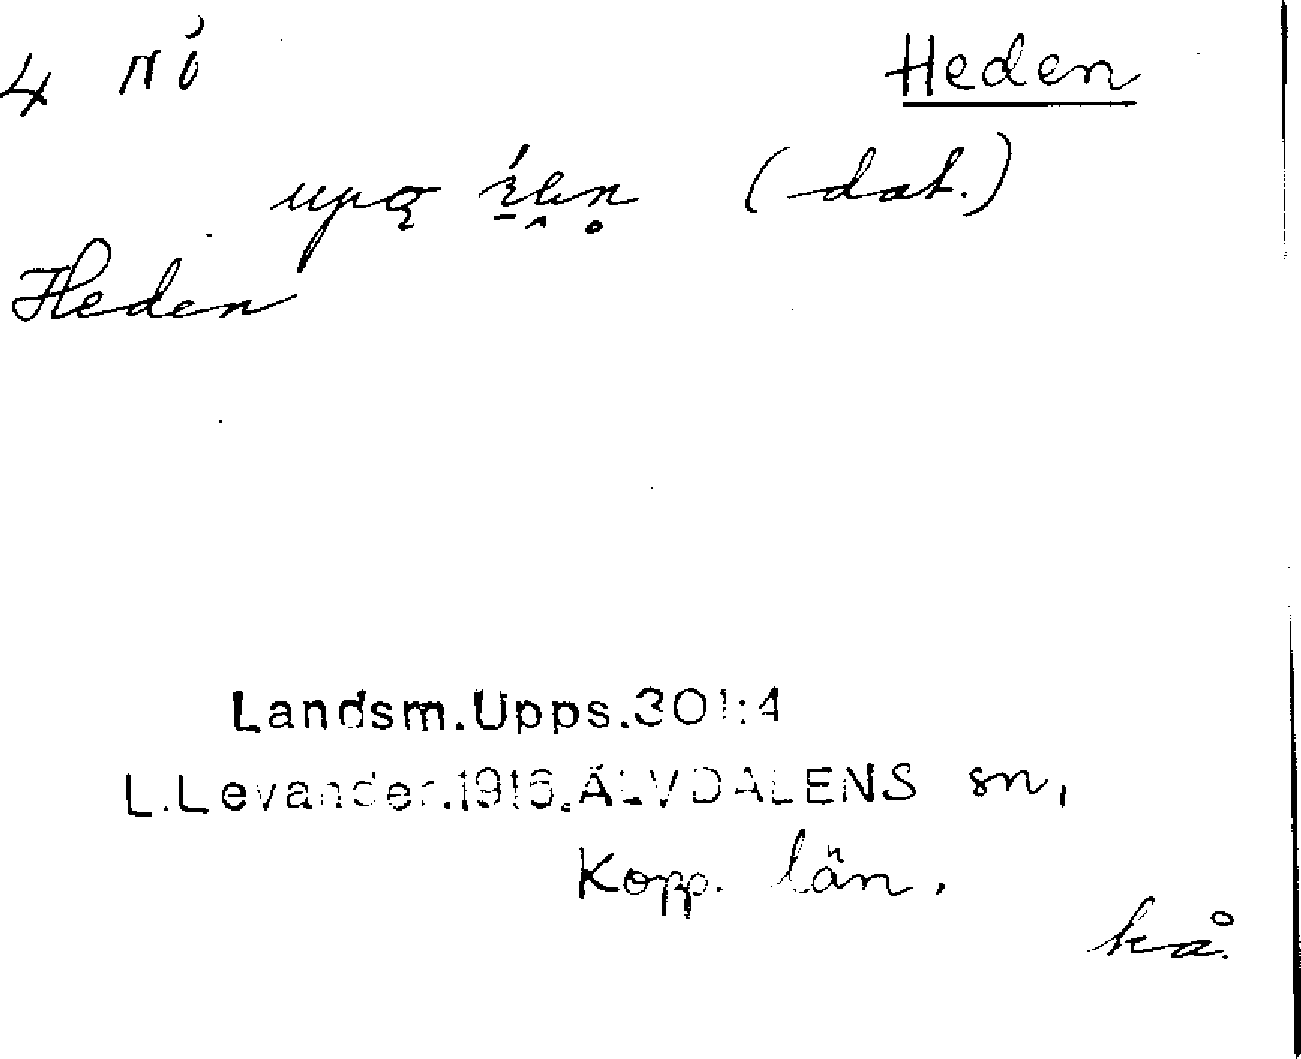 4 NÖ Heden
(dat.)
Heden
Landsm.Upps.301:4
L.Levander.1916.ÄLVDALENS sn,
Kopp. län.
kå.